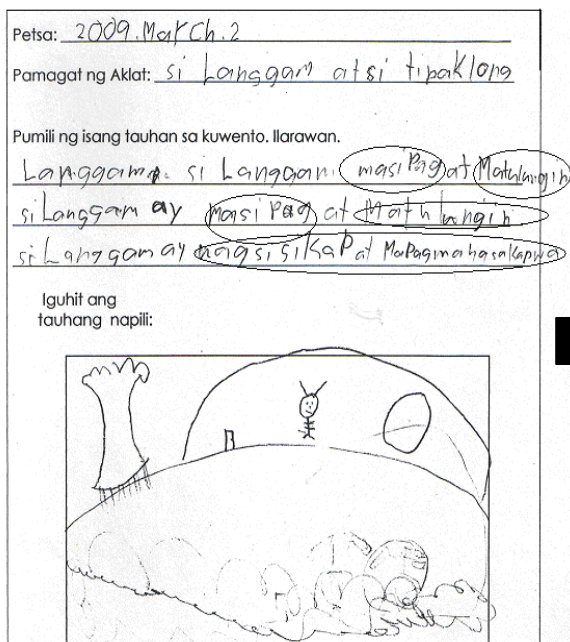 Petsa: 2009.MarCh.2
Pamagat ng Aklat: si Langgam at si tipaklong
Pumili ng isang tauhan sa kuwento. Ilarawan.
Langgam. si Langgam masiPag at Matulungin
si Langgam ay masi Pag at Matulungin
si Langgam ay nagsisikaP at MaPagmahasakapwa
Iguhit ang
tauhang napili: